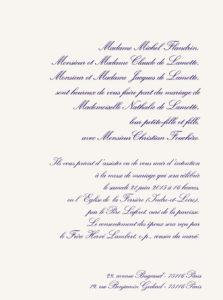 Madame Michel Flandrin,
Monsieur et Madame Claude de Lamotte,
Monsieur et Madame Jacques de Lamotte,
sont heureux de vous faire part du mariage de
Mademoiselle Nathalie de Lamotte,
leur petite-fille et fille,
avec Monsieur Christian Fouchère.
Ils vous prient d'assister ou de vous unir d'intention
à la messe de mariage qui sera célébrée
le samedi 21 juin 2015 à 16 heures,
en l'Église de la Ferrière (Indre-et-Loire),
par le Père Lafont, curé de la paroisse.
Le consentement des époux sera reçu par
le Frère Hervé Lambert, o.p., cousin du marié.
29, avenue Bugeaud - 75116 Paris
19, rue Benjamin Godard - 75116 Paris